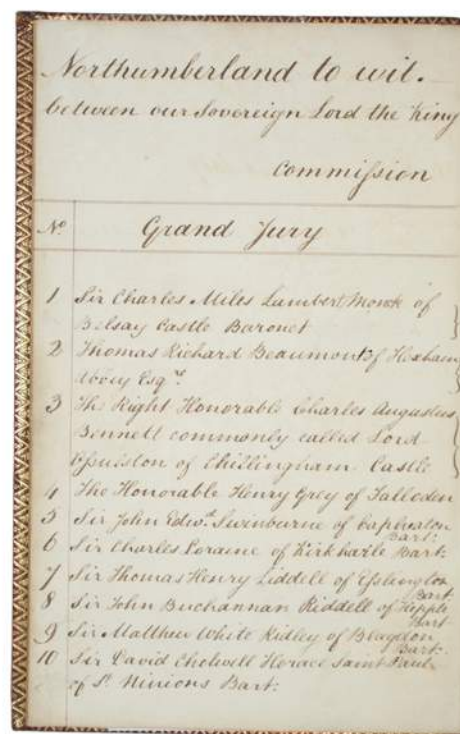 Northumberland to wit.
between our Sovereign Lord the King
Commission
No Grand Jury
1 Sir Charles Miles Lambert Monck of
Belsay Castle Baronet
2 Thomas Richard Beaumont of Hexham
Abbey Esqre
3 The Right Honorable Charles Augustus
Bennett commonly called Lord
Ossulston of Chillingham Castle
4 The Honorable Henry Grey of Falloden
5 Sir John Edwd. Swinburne of Capheaton
Bart:
6 Sir Charles Loraine of Kirkharle Bart:
7 Sir Thomas Henry Liddell of Eslington
Bart
8 Sir John Buchannan Riddell of
Bart
9 Sir Matthew White Ridley of Blagdon
Bart:
10 Sir David Horace Saint Paul
of St. Ninions Bart: